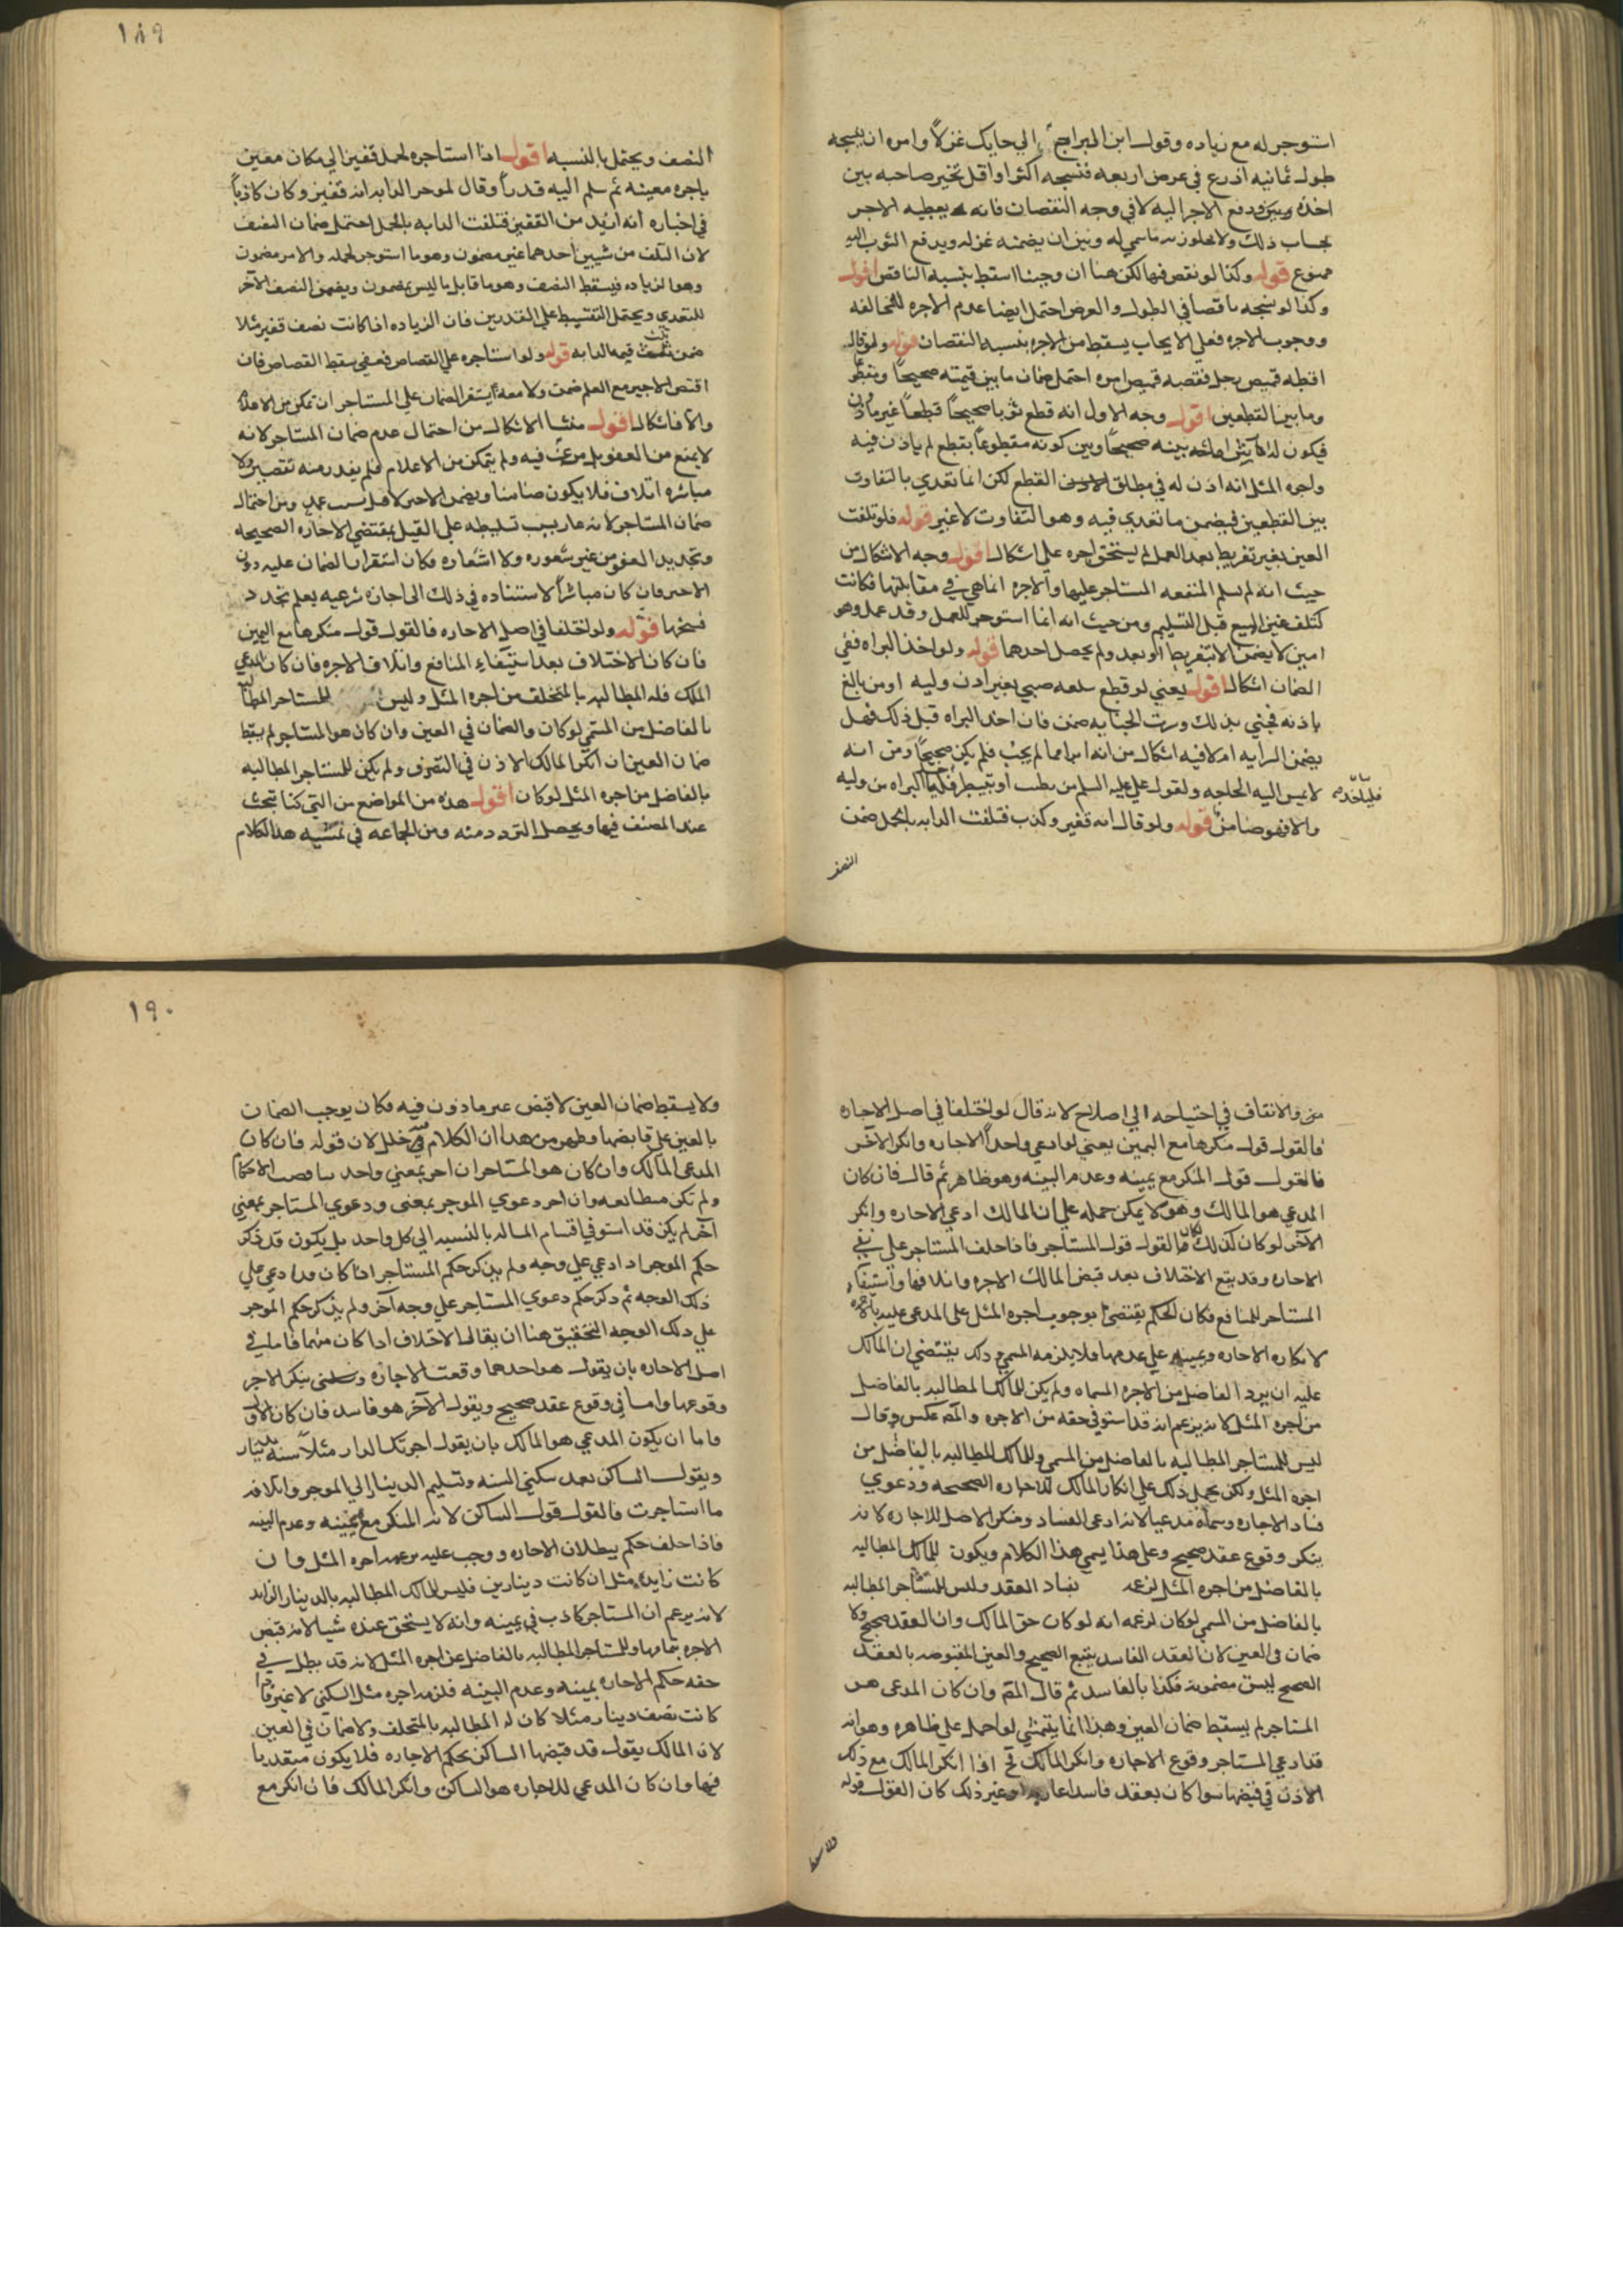 استوجر له مع زياده وقول ابن البراج الي حايك غزلاً وامره ان ينسجه
طول ثمانيه اذرع في عرض اربعه فنسجه اكثر او اقل تخير صاحبه بين
اخذه وبين ودفع الاجر اليه لا في وجه النقصان فانه يعطيه الاجر
بحساب ذلك ولا يجاوز به ما سمي له وبين ان يضمنه غزله ويدفع الثوب اليه
ممنوع قوله وكذا لو نقص فيها لكن هنا ان وجبنا اسقط بنسبه الناقص اقول
وكذا لو نسجه ناقصا في الطول والعرض احتمل ايضا عدم الاجره للمخالفه
ووجوب الاجره فعلي الايجاب يسقط من الاجره بنسبه النقصان قوله ولو قال
اقطعه قميص رجل فقطعه قميص امره احتمل ضمان ما بين قيمته صحيحاً ومقطوعاً
وما بين القطعين اقول وجه الاول انه قطع ثوبا صحيحاً قطعاً غير ماذون
فيكون له صحيحاً وبين كونه مقطوعاً بقطع لم ياذن فيه
ولجوه المثل انه اذن له في مطلق القطع لكن انما تعدي بالتفاوت
بين القطعين فيضمن ما تعدي فيه وهو التفاوت لا غير قوله فلو تلفت
العين بغير تفريط بعد العمل لم يستحق اجره علي اشكال اقول وجه الاشكال من
حيث انه لم يسلم المنفعه المستاجر عليها والاجره انما هي في مقابلتها فكانت
كتلف عين المبيع قبل التسليم ومن حيث انه انما استوجر للعمل وقد عمل وهو
امين لا يضمن الا بتفريط او بعد ولم يحصل احدهما قوله ولو اخذ البراه ففي
الضمان اشكال اقول يعني لو قطع سلعه صبي بغير اذن وليه او من بالغ
باذنه فجني بذلك ورث الجنايه ضمن فان اخذ البراه قبل ذلك فهل
يضمن السرايه ام لا فيه اشكال من انه ابرا مما لم يجب فلم يكن صحيحاً ومن انه
لا يمس اليه الحاجه ولقول علي عليه السلم من تطبب او تبيطر فلياخذ البراه من وليه
فلياخذ صح
والا فهو ضامن قوله ولو قال انه قفيز وكذب فتلفت الدابه بالحمل ضمن
النصف
١٨٩
النصف ويحتمل بالنسبه اقول اذا استاجره لحمل قفيز الي مكان معين
باجره معينه ثم سلم اليه قدراً وقال لموجر الدابه انه قفيز وكان كاذباً
في اخباره انه ازيد من القفيز فتلفت الدابه بالحمل احتمل ضمان النصف
لان التلف من شيين احدهما غير مضمون وهو ما استوجر لحمله والاخر مضمون
وهو الزياده فيسقط النصف وهو ما قابل ما ليس بمضمون ويضمن النصف الآخر
للتعدي ويحتمل التقسيط علي القدرين فان الزياده اذا كانت نصف قفيز مثلا
ضمن ثلث قيمه الدابه قوله ولو استاجره علي القصاص فعفي سقط القصاص فان
اقتص الاجير مع العلم ضمن ولا معه يستقر الضمان علي المستاجر ان تمكن من الاعلام
والا فاشكال اقول منشا الاشكال من احتمال عدم ضمان المستاجر لانه
لا يمنع من العفو بل مرغب فيه ولم يتمكن من الاعلام فلم يصدر منه تقصير ولا
مباشره اتلاف فلا يكون ضامنا ويضمن الاجير ومن احتمال
ضمان المستاجر لانه صار بسبب تسليطه علي القتل بمقتضي الاجاره الصحيحه
وتجديد العفو من غير شعوره ولا اشعاره فكان استقرار الضمان عليه دون
الاجير وان كان مباشراً لاستناده في ذلك الي اجازه شرعيه يعلم تجدد
فسخها قوله ولو اختلفا في اصل الاجاره فالقول قول منكرها مع اليمين
فان كان الاختلاف بعد استيفاء المنافع واتلاف الاجره فان كان المدعي
المالك فله المطالبه بالمتخلف من اجره المثل وليس للمستاجر المطالبه
بالفاضل من المسمي لو كان والضمان في العين وان كان هو المستاجر لم يسقط
ضمان العين ان انكر المالك الاذن في التصرف ولم يكن للمستاجر المطالبه
بالفاضل من اجره المثل لو كان اقول هذه من المواضع من التي كنا نبحث
عند المصنف فيها ويحصل التردد منه ومن الجماعه في تمشيه هذا الكلام
والاتفاق في احتياجه الي اصلاح لانه قال لو اختلفا في اصل الاجاره
فالقول قول منكرها مع اليمين يعني لو ادعي واحداً الاجاره وانكر الآخر
فالقول قول المنكر مع يمينه وعدم البينه وهو ظاهر ثم قال فان كان
المدعي هو المالك وهو لا يمكن حمله علي ان المالك ادعي الاجاره وانكر
الآخر لو كان كذلك كان فالقول قول المستاجر فاذا حلف المستاجر علي نفي
الاجاره وقد يقع الاختلاف بعد قبض المالك الاجره واتلافها واستيفاء
المستاجر المنافع فكان الحكم يقتضي بوجوب اجره المثل علي المدعي عليه بالاجره
لانكاره الاجاره ويمينه علي عدمها فلا يلزمه المسمي وذلك يقتضي ان المالك
عليه ان يرد الفاضل من الاجره المسماه ولم يكن للمالك المطالبه بالفاضل
من اجره المثل لانه يزعم انه قد استوفي حقه من الاجره والمص عكس وقال
ليس للمستاجر المطالبه بالفاضل من المسمي وللمالك المطالبه بالفاضل من
اجره المثل ولكن يحمل ذلك علي انكار المالك للاجاره الصحيحه ودعوي
فساد الاجاره وسماه مدعيا لانه ادعي الفساد ومنكر الاصل للاجاره لانه
ينكر وقوع عقد صحيح وعلي هذا يمشي هذا الكلام ويكون للمالك المطالبه
بالفاضل من اجره المثل لزعمه فساد العقد وليس للمستاجر المطالبه
بالفاضل من المسمي لو كان لزعمه انه لو كان حق المالك وان العقد صحيح ولا
ضمان في العين لان العقد الفاسد يتبع الصحيح والعين المقبوضه بالعقد
الصحيح ليست مضمونه فكذا بالفاسد ثم قال المص وان كان المدعي هو
المستاجر لم يسقط ضمان العين وهذا انما يتمشي لو احمل علي ظاهره وهو انه
قد ادعي المستاجر وقوع الاجاره وانكر المالك فح اذا انكر المالك مع ذلك
الاذن في قبضها سوا كان بعقد فاسد او غير ذلك كان القول قوله
ولا يسقط
١٩٠
ولا يسقط ضمان العين لا قبض غير ماذون فيه فكان يوجب الضمان
بالعين علي قابضها وظهر من هذا ان الكلام فيه خلل لان قوله فان كان
المدعي المالك وان كان هو المستاجر ان اخر بمعني واحد
ولم تكن وان اخر دعوي الموجر بمعنى ودعوي المستاجر بمعني
آخر لم يكن قد استوفي اقسام المساله بالنسبه الي كل واحد بل يكون قد ذكر
حكم الموجر اذا ادعي علي وجه ولم يذكر حكم المستاجر اذا كان قد ادعي علي
ذلك الوجه ثم ذكر حكم دعوي المستاجر علي وجه آخر ولم يذكر حكم الموجر
علي ذلك الوجه التحقيق هنا ان يقال الاختلاف اذا كان منهما فاما في
اصل الاجاره بان يقول هو احدهما وقعت الاجاره وينكر الاخر
وقوعها واما في وقوع عقد صحيح ويقول الآخر هو فاسد فان كان الاول
فاما ان يكون المدعي هو المالك بان يقول اجرتك الدار مثلاً سنه بدينار
ويقول الساكن بعد سكني السنه وتسليم الدينار الي الموجر واتلافه
ما استاجرت فالقول قول الساكن لانه المنكر مع يمينه وعدم البينه
فاذا حلف حكم ببطلان الاجاره ووجب عليه اجره المثل فان
كانت زايده مثل ان كانت دينارين فليس للمالك المطالبه بالدينار الزايد
لانه يزعم ان المستاجر كاذب في يمينه وانه لا يستحق عنده شيا لانه قبض
الاجره بتمامها وللمستاجر المطالبه بالفاضل عن اجره المثل لانه قد بطل في
حقه حكم الاجاره بيمينه وعدم البينه فلزمه اجره مثل السكني لا غير فاذا
كانت نصف دينار مثلا كان له المطالبه بالمتخلف ولا ضمان في العين
لان المالك يقول قد قبضها الساكن بحكم الاجاره فلا يكون متعديا
فيها وان كان المدعي للاجاره هو الساكن وانكر المالك فان انكر مع